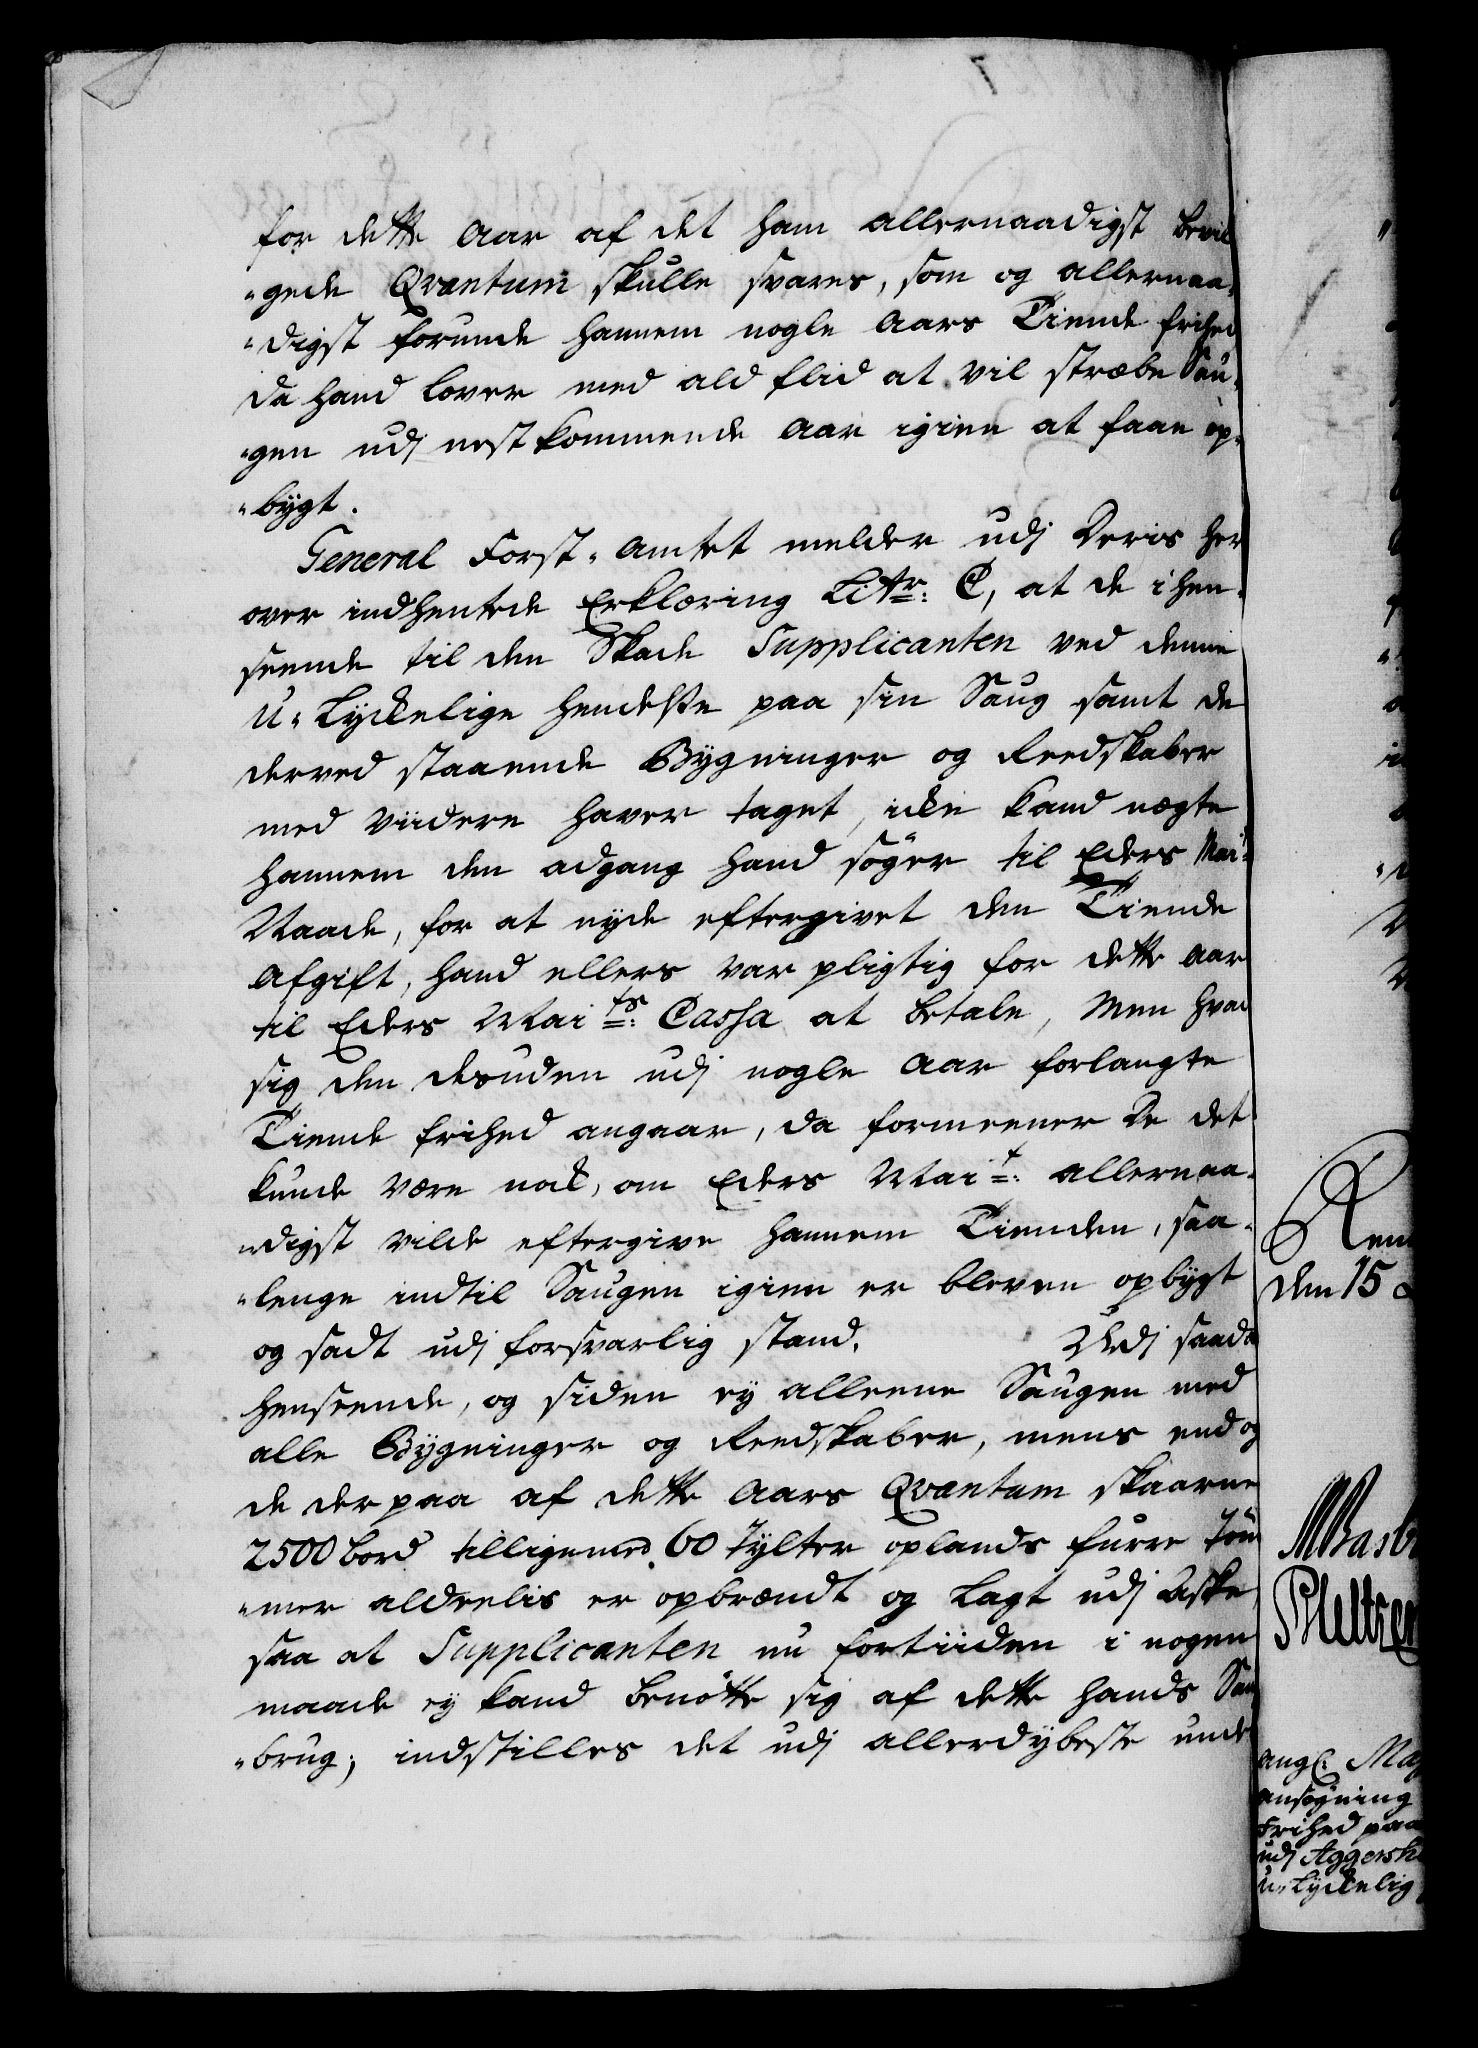 for dette Aar af det ham allernaadigst bevil
-gede Qvantum skulle svares, som og allernaa-
-digst forunde hannem nogle Aars Tiende frihed
da hand lover med ald flid at vil stræbe Sau-
-gen udj nestkommende Aar igien at faae op-
-bÿgt.
General Forst-Amtet melder udj Deris her
over indhentede Erklæring Litr: C, at de i hen-
seende til den Skade Supplicanten ved denne
U-Lyckelige hendelse paa sin Saug samt de
derved staaende Bÿgninger og Reedskaber
med viidere haver taget, icke kand nægte
hannem den adgang hand söger til Eders Mai:
Naade, for at nyde eftergivet den Tiende
Afgift, hand ellers var pligtig for dette Aar
til Eders Maits: Cassa at betale, Men hvad
sig den desuden udj nogle Aar forlangte
Tiende frihed angaar, da formeener De det
kunde være nok, om Eders Mait: allernaa-
-digst vilde eftergive hannem Tienden, saa-
-lenge indtil Saugen igien er bleven opbÿgt
og sadt udj forsvarlig stand. Udj saada
henseende, og siden eÿ alleene Saugen med
alle Bÿgninger og Reedskaber, mens endog
de derpaa af dette Aars Qvantum skaarne
2500 bord tilligemed 60 Tÿlter oplands furre Töm
-mer aldeelis er opbrændt og Lagt udj Aske,
saa at Supplicanten nu fortiiden i nogen
maade eÿ kand benötte sig af dette hands Sau
-brug; indstilles det udj allerdÿbeste unde
Rent
den 15
ang: Maj
ansøgning
Frihed paa
udj Aggersh
U-Lyckelig